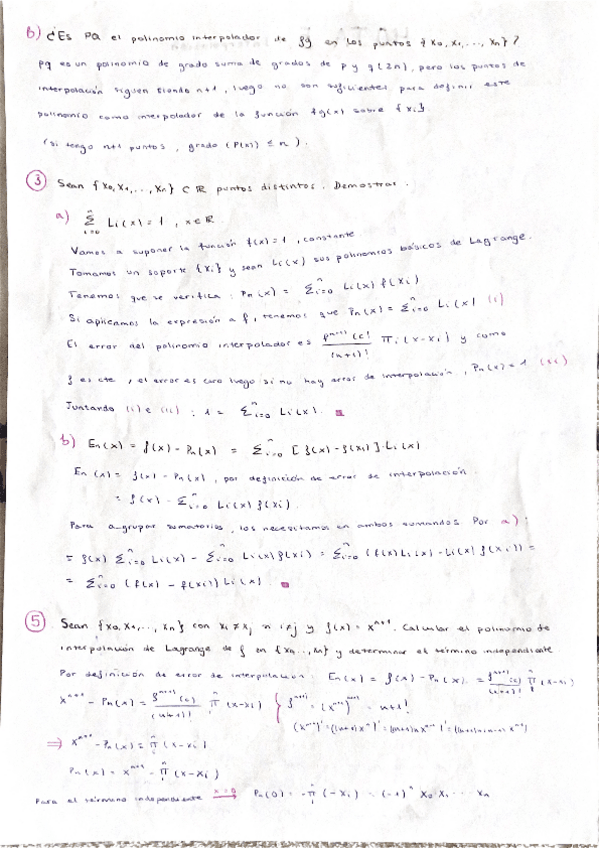 b) ¿Es PQ el polinomio interpolador de fg en los puntos {x₀, x₁, ..., xₙ}?
pq es un polinomio de grado suma de grados de p y q (2n), pero los puntos de
interpolación siguen siendo n+1, luego no son suficientes para definir este
polinomio como interpolador de la función fg(x) sobre {xᵢ}.
(si tengo n+1 puntos, grado (P(x)) ≤ n).
③ Sean {x₀, x₁, ..., xₙ} ⊂ ℝ puntos distintos. Demostrar.
a) Σⁿᵢ₌₀ Lᵢ(x) = 1, x ∈ ℝ.
Vamos a suponer la función f(x) = 1, constante.
Tomamos un soporte {xᵢ} y sean Lᵢ(x) sus polinomios básicos de Lagrange.
Tenemos que se verifica: Pₙ(x) = Σⁿᵢ₌₀ Lᵢ(x) f(xᵢ)
Si aplicamos la expresión a f, tenemos que Pₙ(x) = Σⁿᵢ₌₀ Lᵢ(x) (i)
El error del polinomio interpolador es fⁿ⁺¹(c)/(n+1)! πᵢ(x-xᵢ) y como
f es cte, el error es cero luego si no hay error de interpolación, Pₙ(x) = 1 (ii)
Juntando (i) e (ii): 1 = Σⁿᵢ₌₀ Lᵢ(x).
b) Eₙ(x) = f(x) - Pₙ(x) = Σⁿᵢ₌₀ [f(x) - f(xᵢ)]·Lᵢ(x)
Eₙ(x) = f(x) - Pₙ(x), por definición de error de interpolación.
= f(x) - Σⁿᵢ₌₀ Lᵢ(x) f(xᵢ).
Para agrupar sumatorios, los necesitamos en ambos sumandos. Por a):
= f(x) Σⁿᵢ₌₀ Lᵢ(x) - Σⁿᵢ₌₀ Lᵢ(x) f(xᵢ) = Σⁿᵢ₌₀ (f(x)Lᵢ(x) - Lᵢ(x) f(xᵢ)) =
= Σⁿᵢ₌₀ (f(x) - f(xᵢ)) Lᵢ(x).
⑤ Sean {x₀, x₁, ..., xₙ} con xᵢ ≠ xⱼ si i≠j y f(x) = xⁿ⁺¹. Calcular el polinomio de
interpolación de Lagrange de f en {x₀, ..., xₙ} y determinar el término independiente.
Por definición de error de interpolación: Eₙ(x) = f(x) - Pₙ(x) = fⁿ⁺¹(c)/(n+1)! πⁿᵢ(x-xᵢ)
xⁿ⁺¹ - Pₙ(x) = fⁿ⁺¹(c)/(n+1)! πⁿᵢ (x-xᵢ) { fⁿ⁺¹ = (xⁿ⁺¹)ⁿ⁺¹ = n+1!
⟹ xⁿ⁺¹ - Pₙ(x) = πⁿᵢ(x-xᵢ)
Pₙ(x) = xⁿ⁺¹ - πⁿᵢ (x-xᵢ)
Para el término independiente x=0 → Pₙ(0) = -πⁿᵢ (-xᵢ) = (-1)ⁿ x₀ x₁ ... xₙ